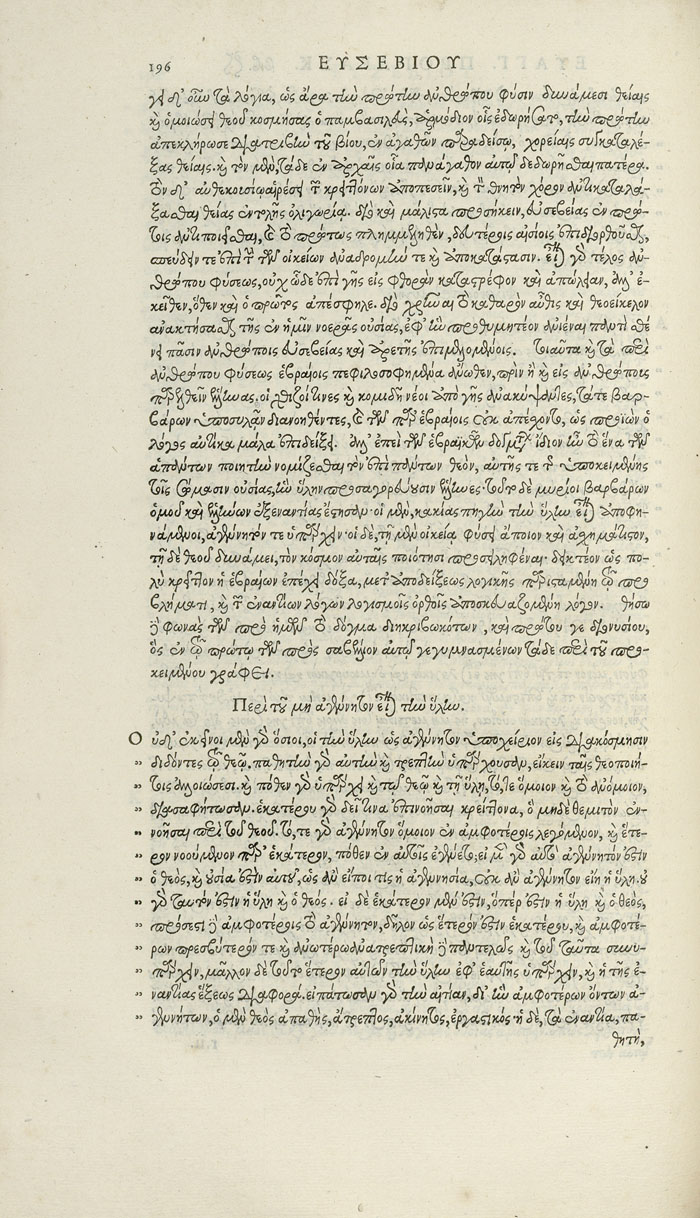 196 ΕΥΣΕΒΙΟΥ
γει δ' οὖν τὰ λόγια, ὡς ἄρα τὴν πρώτην ἀνθρώπου φύσιν δυνάμεσι θείαις
καὶ ὁμοιώσει θεοῦ κοσμήσας ὁ παμβασιλεὺς, ἁρμόδιον οἷς ἐδωρήσατο, τὴν πρώτην
ἀπεκλήρωσε διατριβὴν τοῦ βίου, ἐν ἀγαθῶν παραδείσῳ, χορείαις συγκαταλέ-
ξας θείαις. καὶ τὸν μὲν, τάδε ἐν ἀρχαῖς οἷα πανάγαθον αὐτῷ δεδωρῆσθαι πατέρα.
τὸν δ' αὐθεκουσίῳ αἱρέσει τῶν κρειττόνων ἀποπεσεῖν, καὶ τὸν θνητὸν χῶρον ἀντικαταλά-
ξασθαι θείας ἐντολῆς ὀλιγωρίᾳ. διὸ καὶ μάλιστα προσήκειν, εὐσεβείας ἐν πρώ-
τοις ἀντιποιεῖσθαι, καὶ τὸ πρώτως πλημμεληθὲν, δευτέροις αἰσίοις ἐπιδιορθοῦσθαι,
σπεύδειν τε ἐπὶ τὴν τῶν οἰκείων ἀναδρομήν τε καὶ ἀποκατάστασιν. εἶναι γὰρ τέλος ἀν-
θρώπου φύσεως, οὐχ ὧδε ἐπὶ γῆς εἰς φθορὰν καταστρέφον καὶ ἀπώλειαν, ἀλλ' ἐ-
κεῖθεν, ὅθεν καὶ ὁ πρῶτος ἀπέσφηλε. διὸ χρῆναι τὸ καθαρὸν αὖθις καὶ θεοείκελον
ἀνακτήσασθαι τῆς ἐν ἡμῖν νοερᾶς οὐσίας, ἐφ' ἣν προθυμητέον ἀνιέναι παντὶ σθέ
νει πᾶσιν ἀνθρώποις εὐσεβείας καὶ ἀρετῆς ἐπιμελομένοις. τοιαῦτα καὶ τὰ περὶ
ἀνθρώπου φύσεως ἑβραίοις πεφιλοσοφημένα ἄνωθεν, πρὶν ἢ καὶ εἰς ἀνθρώπους
παρελθεῖν ἕλληνας. οἳ χθιζοί τινες καὶ κομιδῇ νέοι ἀπὸ γῆς ἀνακύψαντες, τά τε βαρ-
βάρων ὑποσυλᾶν διανοηθέντες, καὶ τῶν παρ' ἑβραίοις οὐκ ἀπέσχοντο, ὡς προϊὼν ὁ
λόγος αὐτίκα μάλα ἐπιδείξει. ἀλλ' ἐπεὶ τῶν ἑβραϊκῶν δογμάτων ἴδιον ἦν τὸ ἕνα τῶν
ἁπάντων ποιητὴν νομίζεσθαι τὸν ἐπὶ πάντων θεὸν, αὐτῆς τε τῆς ὑποκειμένης
τοῖς σώμασιν οὐσίας, ἣν ὕλην προσαγορεύουσιν ἕλληνες· τούτῳ δὲ μυρίοι βαρβάρων
ὁμοῦ καὶ ἑλλήνων ἐξεναντίας ἔστησαν· οἱ μὲν, κακίας πηγὴν τὴν ὕλην εἶναι ἀποφη-
νάμενοι, ἀγένητόν τε ὑπάρχειν· οἱ δὲ, τῇ μὲν οἰκείᾳ φύσει ἄποιον καὶ ἀσχημάτιστον,
τῇ δὲ θεοῦ δυνάμει, τὸν κόσμον αὐταῖς ποιότησι προσειληφέναι· δεικτέον ὡς πο-
λὺ κρείττον' ἡ ἑβραίων ἐπέχει δόξα, μετ' ἀποδείξεως λογικῆς παρισταμένη τῷ προ
βλήματι, καὶ τὸν ἐναντίων λόγων λογισμοῖς ὀρθοῖς ἀποσκευαζομένη λόγον. θήσω
δὲ φωνὰς τῶν πρὸ ἡμῶν τὸ δόγμα διηκριβωκότων, καὶ πρώτου γε διονυσίου,
ὃς ἐν τῷ πρώτῳ τῶν πρὸς σαβέλλιον αὐτῷ γεγυμνασμένων τάδε περὶ τοῦ προ-
κειμένου γράφει.
Περὶ τοῦ μὴ ἀγένητον εἶναι τὴν ὕλην.
Οὐδ' ἐκεῖνοι μὲν γὰρ ὅσιοι, οἱ τὴν ὕλην ὡς ἀγένητον ὑποχείριον εἰς διακόσμησιν
" διδόντες τῷ θεῷ. παθητὴν γὰρ αὐτὴν καὶ τρεπτὴν ὑπάρχουσαν, εἴκειν ταῖς θεοποιή-
" τοις ἀλλοιώσεσι. καὶ πόθεν γὰρ ὑπάρχει καὶ τῷ θεῷ καὶ τῇ ὕλῃ, τό, τε ὅμοιον καὶ τὸ ἀνόμοιον,
" διασαφήτωσαν. ἑκατέρου γὰρ δεῖ τινα ἐπινοῆσαι κρείττονα, ὃ μηδὲ θεμιτὸν ἐν-
" νοῆσαι περὶ τοῦ θεοῦ. τό, τε γὰρ ἀγένητον ὅμοιον ἐν ἀμφοτέροις λεγόμενον, καὶ ἕτε-
" ρον νοούμενον παρ' ἑκάτερον, πόθεν ἐν αὐτοῖς ἐγένετο; εἰ μὲν γὰρ αὐτὸ ἀγένητόν ἐστιν
" ὁ θεὸς, καὶ οὐσία ἐστὶν αὐτοῦ, ὡς ἂν εἴποι τις ἡ ἀγενησία, οὐκ ἂν ἀγένητον εἴη ἡ ὕλη. οὐ
" γὰρ ταυτόν ἐστιν ἡ ὕλη καὶ ὁ θεός. εἰ δὲ ἑκάτερον μέν ἐστιν, ὅπερ ἐστὶν ἡ ὕλη καὶ ὁ θεὸς,
" πρόσεστι δὲ ἀμφοτέροις τὸ ἀγένητον, δῆλον ὡς ἕτερόν ἐστιν ἑκατέρου, καὶ ἀμφοτέ-
" ρων πρεσβύτερόν τε καὶ ἀνωτέρω. ἀνατρεπτικὴ δὲ παντελῶς καὶ τοῦ ταῦτα συνυ-
" πάρχειν, μᾶλλον δὲ τοῦ τὸ ἕτερον αὐτῶν τὴν ὕλην ἐφ' ἑαυτῆς ὑπάρχειν, καὶ ἡ τῆς ἐ-
" ναντίας ἕξεως διαφορά. εἰπάτωσαν γὰρ τὴν αἰτίαν, δι' ἣν ἀμφοτέρων ὄντων ἀ-
" γενήτων, ὁ μὲν θεὸς ἀπαθὴς, ἄτρεπτος, ἀκίνητος, ἐργαστικός· ἡ δὲ, τὰ ἐναντία, πα-
θητὴ,